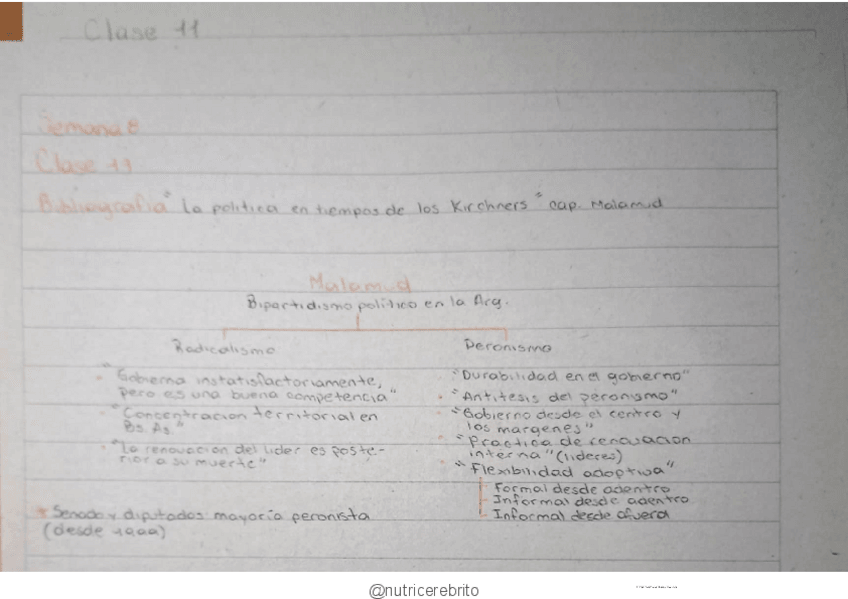 Clase 11
Semana 8
Clase 11
Bibliografia "La politica en tiempos de los Kirchners" cap. Malamud
Malamud
Bipartidismo político en la Arg.
Radicalismo
"Gobierna instatisfactoriamente,
pero es una buena competencia"
"Concentracion territorial en
Bs. As."
"La renovacion del lider es poste-
rior a su muerte"
Peronismo
"Durabilidad en el gobierno"
"Antitesis del peronismo"
"Gobierno desde el centro y
los margenes"
"Practica de renovacion
interna" (lideres)
"Flexibilidad adaptiva"
Formal desde adentro
Informal desde adentro
Informal desde afuera
* Senado y diputados: mayoría peronista
(desde
@nutricerebrito